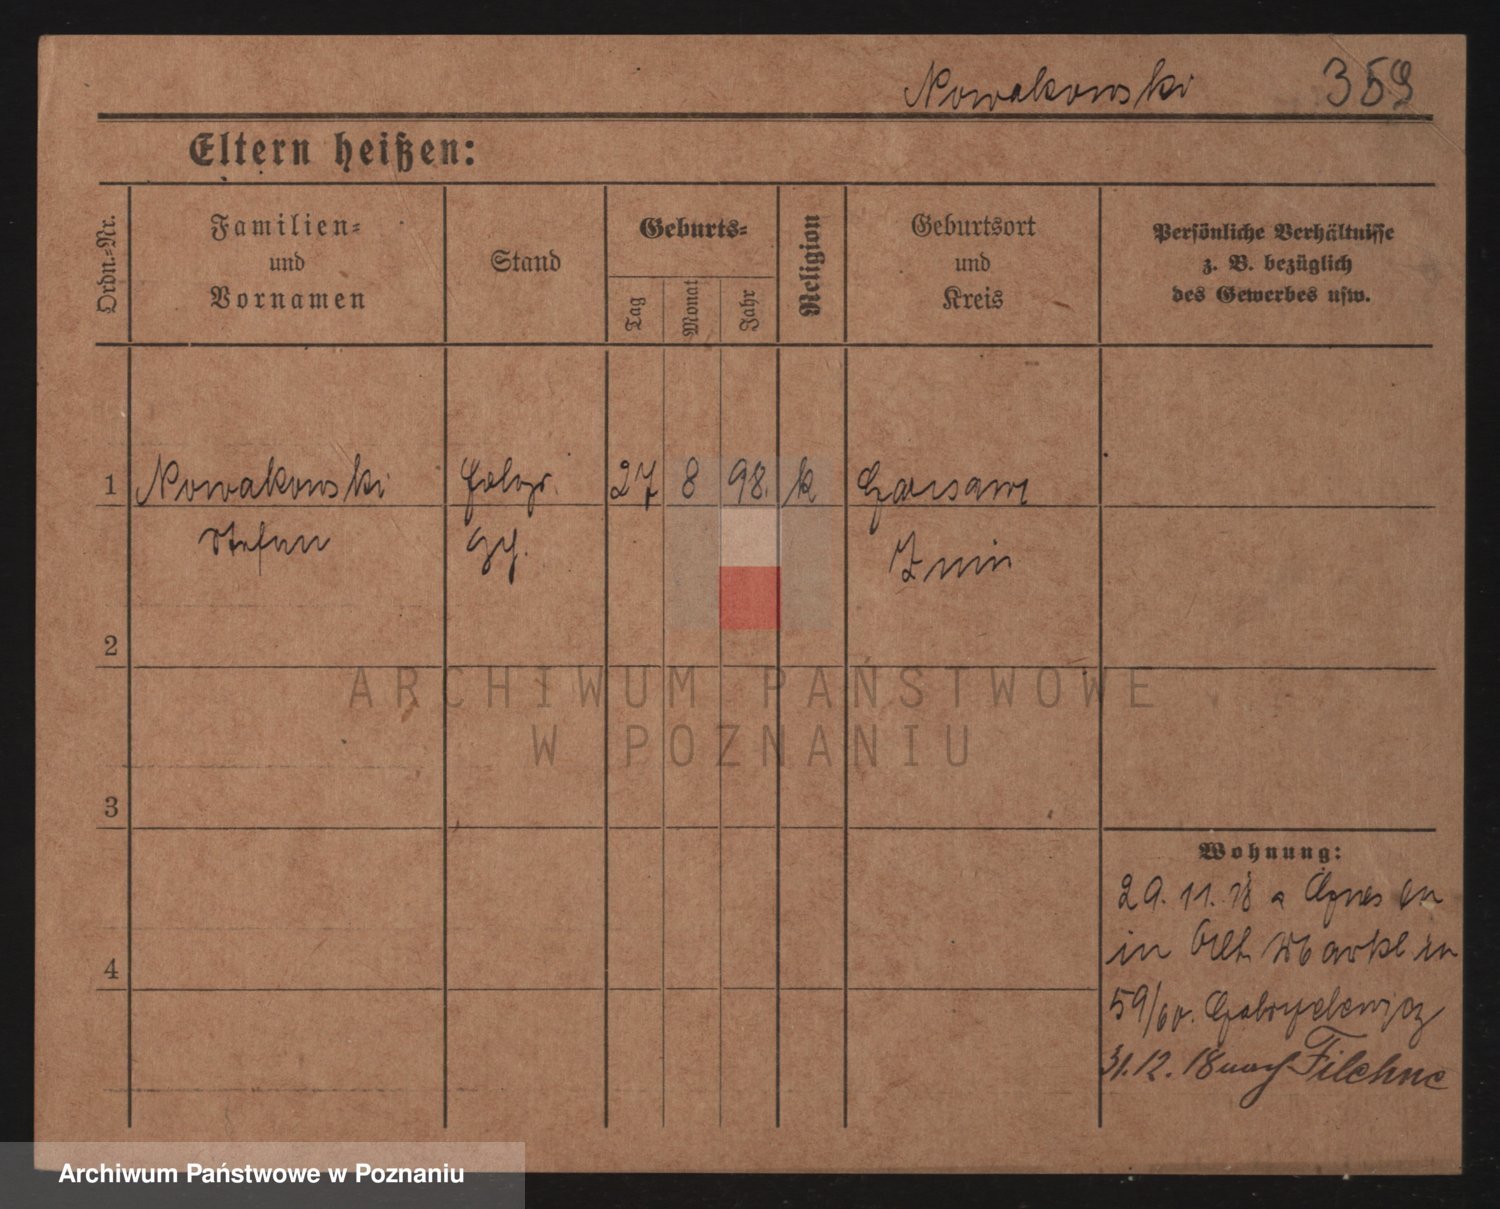 Nowakowski 359
Eltern heißen:
Ordn.-Nr.
Familien-
und
Vornamen
Stand
Geburts-
Tag
Monat
Jahr
Religion
Geburtsort
und
Kreis
Persönliche Verhältnisse
z. B. bezüglich
des Gewerbes usw.
1 Nowakowski 27 8 98. k
Stefan Znin
2
3
4
Wohnung:
29. 11. 18 a
in Alt Markt
59/60.
31. 12. 18 nach Filehne
ARCHIWUM PAŃSTWOWE
W POZNANIU
Archiwum Państwowe w Poznaniu